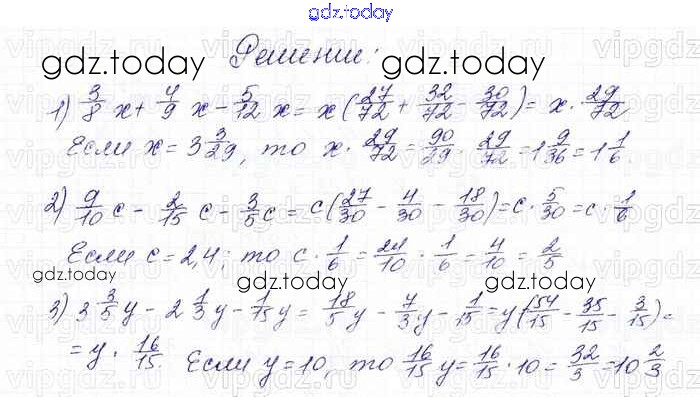 gdz.today
Решение:
gdz.today gdz.today
1) 3/8 x + 4/9 x - 5/12 x = x(27/72 + 32/72 - 30/72) = x · 29/72
Если x = 3 3/29, то x · 29/72 = 90/29 · 29/72 = 1 9/36 = 1 1/6.
2) 9/10 c - 2/15 c - 3/5 c = c(27/30 - 4/30 - 18/30) = c · 5/30 = c · 1/6
Если c = 2,4; то c · 1/6 = 24/10 · 1/6 = 4/10 = 2/5
gdz.today gdz.today
3) 3 3/5 y - 2 1/3 y - 1/15 y = 18/5 y - 7/3 y - 1/15 = y(154/15 - 35/15 - 3/15) =
= y · 16/15. Если y = 10, то 16/15 y = 16/15 · 10 = 32/3 = 10 2/3